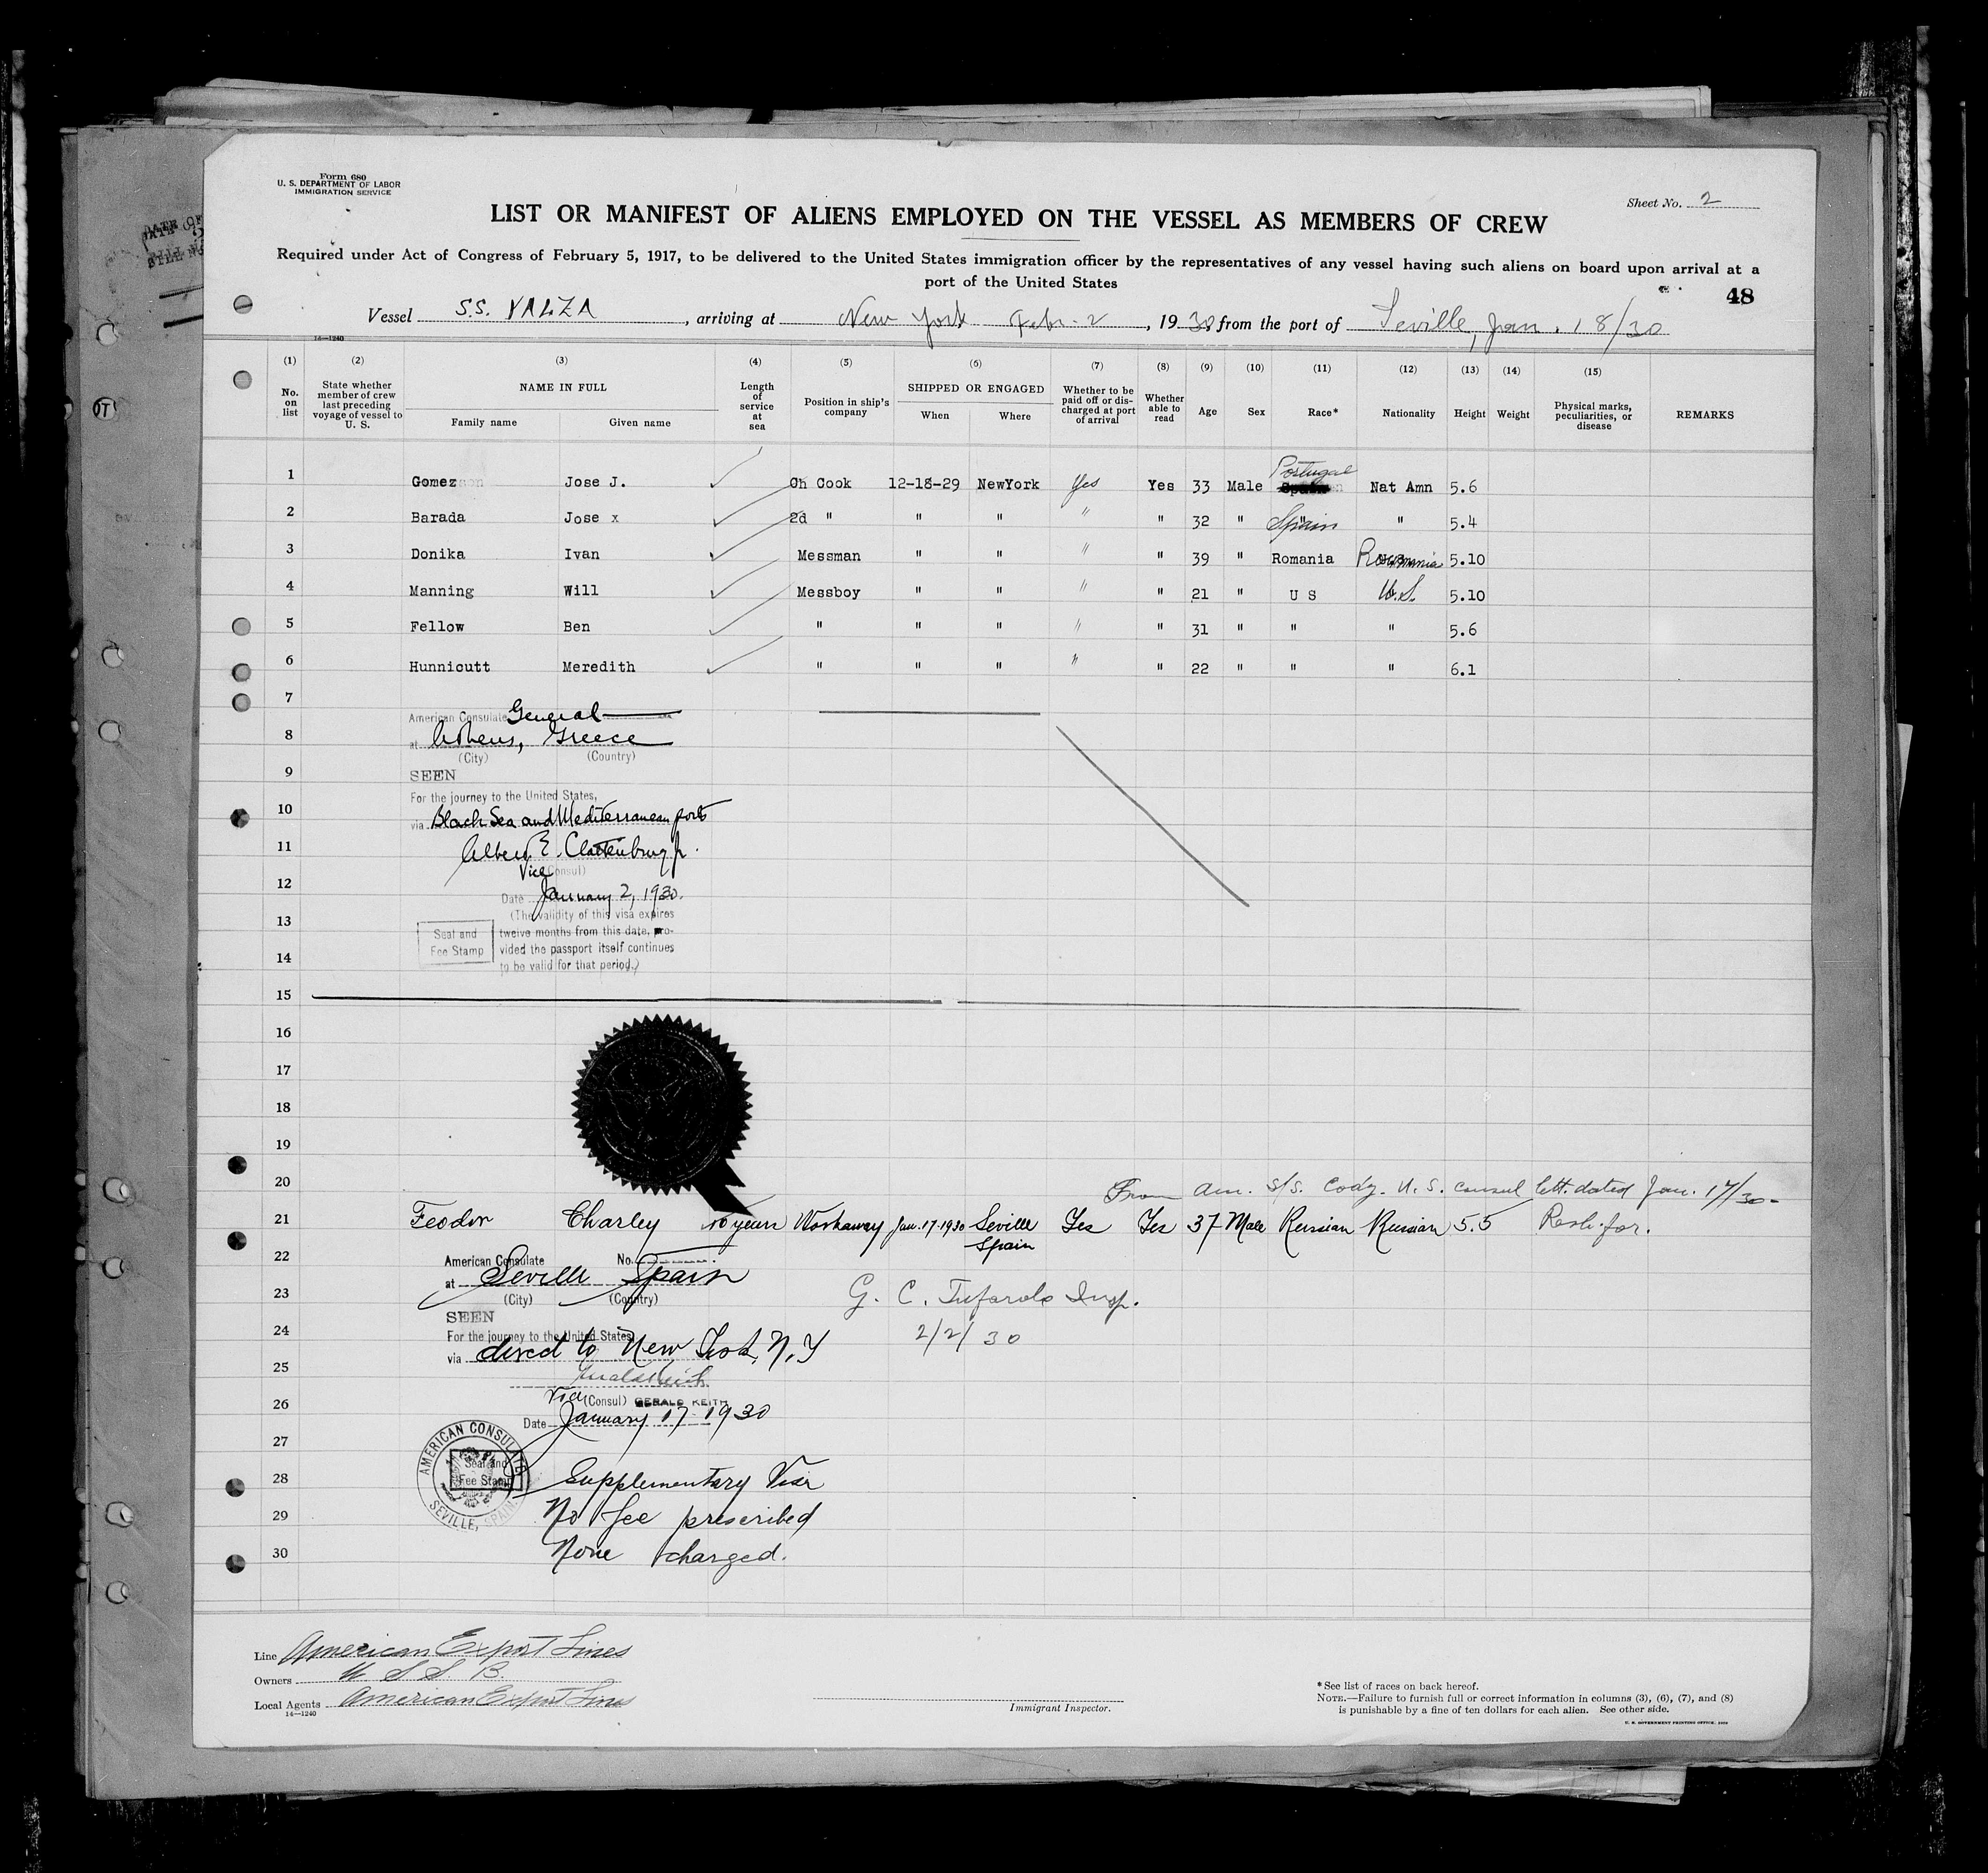 Form 680
U. S. DEPARTMENT OF LABOR
IMMIGRATION SERVICE
Sheet No. 2
LIST OR MANIFEST OF ALIENS EMPLOYED ON THE VESSEL AS MEMBERS OF CREW
Required under Act of Congress of February 5, 1917, to be delivered to the United States immigration officer by the representatives of any vessel having such aliens on board upon arrival at a
port of the United States
48
Vessel S.S. YALZA, arriving at New York Febr. 2, 1930 from the port of Seville, Jan. 18/30
14—1240
(1) (2) (3) (4) (5) (6) (7) (8) (9) (10) (11) (12) (13) (14) (15)
No. on list
State whether member of crew last preceding voyage of vessel to U. S.
NAME IN FULL
Family name
Given name
Length of service at sea
Position in ship's company
SHIPPED OR ENGAGED
When
Where
Whether to be paid off or discharged at port of arrival
Whether able to read
Age
Sex
Race*
Nationality
Height
Weight
Physical marks, peculiarities, or disease
REMARKS
Portugal
1 Gomez Jose J. Ch Cook 12-18-29 NewYork Yes Yes 33 Male Nat Amn 5.6
2 Barada Jose x 2d " " " " " 32 " Spain " 5.4
3 Donika Ivan Messman " " " " 39 " Romania Roumania 5.10
4 Manning Will Messboy " " " " 21 " U S U.S. 5.10
5 Fellow Ben " " " " " 31 " " " 5.6
6 Hunnicutt Meredith " " " " " 22 " " " 6.1
7
American Consulate General
8 at Athens, Greece
(City) (Country)
9 SEEN
For the journey to the United States,
10 via Black Sea and Mediterranean ports
11 Albert E. Clattenburg Jr.
Vice (Consul)
12 Date January 2, 1930.
13 (The validity of this visa expires
twelve months from this date, pro-
vided the passport itself continues
to be valid for that period.)
Seal and
Fee Stamp
14
15
16
17
18
19
20 From Am. S/S. Cody. U.S. Consul lett. dated Jan. 17/30-
21 Feodor Charley 10 years Workaway Jan. 17-1930 Seville Spain Yes Yes 37 Male Russian Russian 5.5
22 American Consulate No.
at Seville Spain
23 (City) (Country)
G. C. Tufarolo Insp.
SEEN
24 For the journey to the United States
2/2/30
via direct to New York, N.Y
25
26 Vice (Consul) GERALD KEITH
Date January 17-1930
27
AMERICAN CONSULATE
SEVILLE, SPAIN.
Seal and
Fee Stamp
28 Supplementary Visa
29 No fee prescribed
30 None charged.
Line American Export Lines
Owners U S S. B.
Local Agents American Export Lines
14—1240
Immigrant Inspector.
* See list of races on back hereof.
NOTE.—Failure to furnish full or correct information in columns (3), (6), (7), and (8)
is punishable by a fine of ten dollars for each alien. See other side.